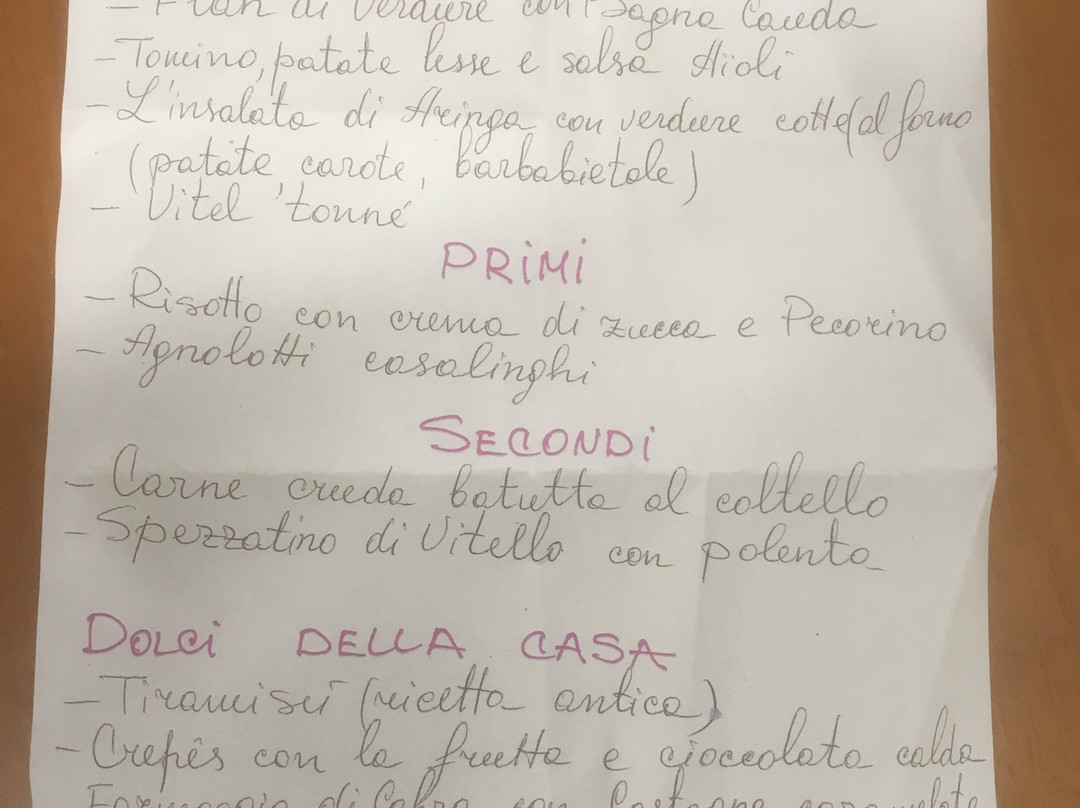 - Flan di verdure con Bagna Cauda
- Tomino, patate lesse e salsa Aioli
- L'insalata di Aringa con verdure cotte (al forno
(patate carote, barbabietole)
- Vitel 'tonné
PRIMI
- Risotto con crema di zucca e Pecorino
- Agnolotti casalinghi
SECONDI
- Carne cruda batutta al coltello
- Spezzatino di Vitello con polenta
DOLCI DELLA CASA
- Tiramisù (ricetta antica)
- Crepês con la frutta e cioccolata calda
Formaggio di Capra con Castagne